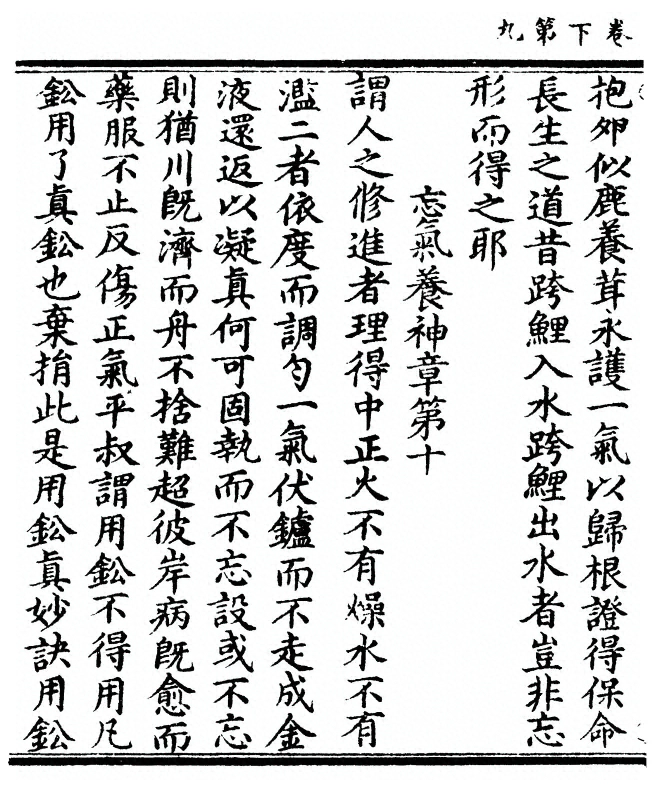 卷下第九
抱卵似鹿養茸永護一氣以歸根證得保命
長生之道昔跨鯉入水跨鯉出水者豈非忘
形而得之耶
忘氣養神章第十
謂人之修進者理得中正火不有燥水不有
濫二者依度而調勻一氣伏鑪而不走成金
液還返以凝眞何可固執而不忘設或不忘
則猶川既濟而舟不捨難超彼岸病既愈而
藥服不止反傷正氣平叔謂用鈆不得用凡
鈆用了眞鈆也棄捐此是用鈆眞妙訣用鈆